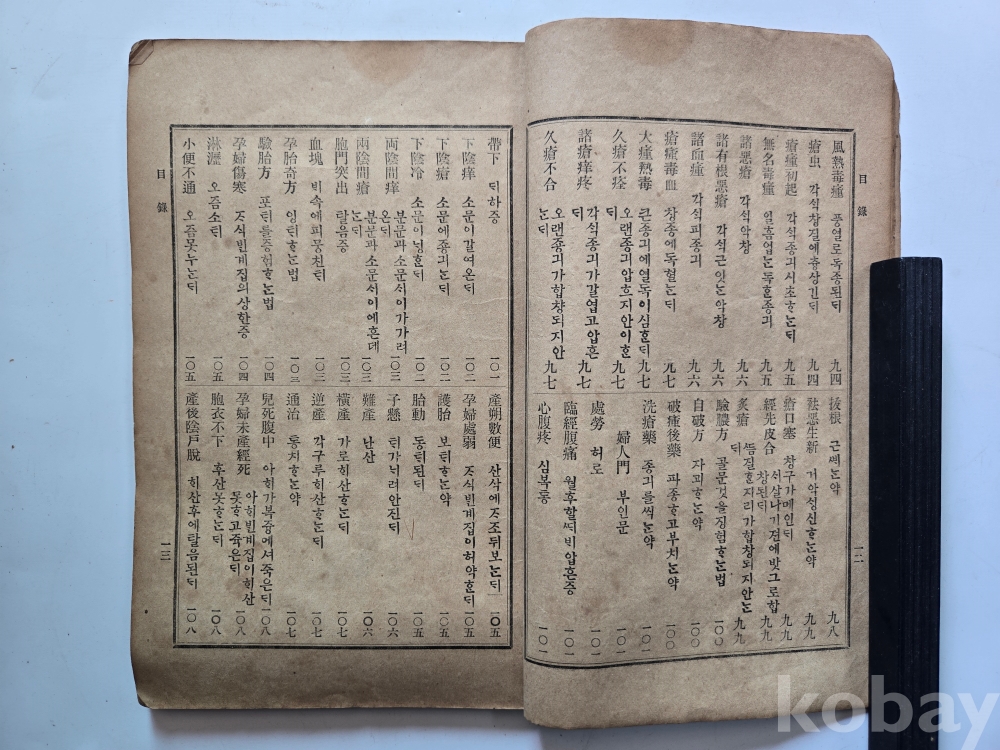 目錄
風熱毒瘇 풍열로독죵된ᄃᆡ 九四
瘡虫 각식창질에츙상긴ᄃᆡ 九四
瘡瘇初起 각식죵긔시초ᄒᆞᄂᆞᆫᄃᆡ 九五
無名毒瘇 일흠업ᄂᆞᆫ독ᄒᆞᆫ죵긔 九五
諸惡瘡 각식악창 九六
諸有根惡瘡 각식근잇ᄂᆞᆫ악창 九六
諸血瘇 각식피죵긔 九六
瘡瘇毒血 창죵에독혈ᄂᆞᆫᄃᆡ 九七
大瘇熱毒 큰죵긔에열독이심ᄒᆞᆫᄃᆡ 九七
久瘡不痊 오랜죵긔압흐지안이ᄒᆞᆫ
ᄃᆡ 九七
諸瘡痒疼 각식죵긔가갈엽고압흔
ᄃᆡ 九七
久瘡不合 오랜죵긔가합창되지안
ᄂᆞᆫᄃᆡ 九七
拔根 근ᄲᅦᄂᆞᆫ약 九八
祛惡生新 거악성신ᄒᆞᄂᆞᆫ약 九九
瘡口塞 창구가메인ᄃᆡ 九九
經先皮合 서살나기젼에밧그로합
창된ᄃᆡ 九九
灸瘡 ᄯᅳᆷ질ᄒᆞᆫ지리가합창되지안ᄂᆞᆫ
ᄃᆡ 九九
驗膿方 골문것을징험ᄒᆞᄂᆞᆫ법 一〇〇
自破方 자괴ᄒᆞᄂᆞᆫ약 一〇〇
破瘇後藥 파죵ᄒᆞ고부치ᄂᆞᆫ약 一〇〇
洗瘡藥 죵긔를씩ᄂᆞᆫ약 一〇一
婦人門 부인문
處勞 허로 一〇一
臨經腹痛 월후할ᄯᅢ비압흔증 一〇一
心腹疼 심복통 一〇一
一二
目錄
帶下 ᄃᆡ하증 一〇一
下陰痒 소문이갈여온ᄃᆡ 一〇二
下陰瘡 소문에죵긔ᄂᆞᆫᄃᆡ 一〇二
下陰冷 소문이닝ᄒᆞᆫᄃᆡ 一〇二
両陰間痒 분문과소문서이가가려
온ᄃᆡ 一〇三
両陰間瘡 분문과소문서이에흔데
ᄂᆞᆫᄃᆡ 一〇三
胞門突出 탈음증 一〇三
血塊 ᄇᆡ속에피뭉친ᄃᆡ 一〇三
孕胎奇方 잉ᄐᆡᄒᆞᄂᆞᆫ법 一〇三
驗胎方 포ᄐᆡ를증험ᄒᆞᄂᆞᆫ법 一〇四
孕婦傷寒 ᄌᆞ식ᄇᆡᆫ계집의상한증 一〇四
淋瀝 오즘소ᄐᆡ 一〇五
小便不通 오즘못누ᄂᆞᆫᄃᆡ 一〇五
產朔數便 산삭에ᄌᆞ조뒤보ᄂᆞᆫᄃᆡ 一〇五
孕婦處弱 ᄌᆞ식ᄇᆡᆫ계집이허약ᄒᆞᆫᄃᆡ 一〇五
護胎 보ᄐᆡᄒᆞᄂᆞᆫ약 一〇五
胎動 동ᄐᆡ된ᄃᆡ 一〇五
子懸 ᄐᆡ가ᄂᆡ려안진ᄃᆡ 一〇六
難產 난산 一〇六
橫產 가로ᄒᆡ산ᄒᆞᄂᆞᆫᄃᆡ 一〇七
逆產 각구루ᄒᆡ산ᄒᆞᄂᆞᆫᄃᆡ 一〇七
通治 통치ᄒᆞᄂᆞᆫ약 一〇七
兒死腹中 아ᄒᆡ가복즁에셔죽은ᄃᆡ 一〇八
孕婦未產經死 아ᄒᆡᄇᆡᆫ계집이ᄒᆡ산
못ᄒᆞ고죽은ᄃᆡ 一〇八
胞衣不下 후산못ᄒᆞᄂᆞᆫᄃᆡ 一〇八
產後陰戶脫 ᄒᆡ산후에탈음된ᄃᆡ 一〇八
一三
kobay